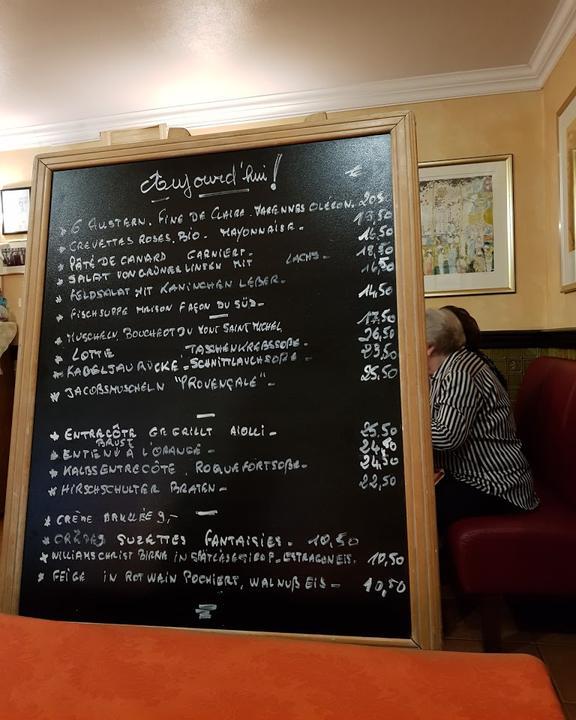 Aujourd'hui!
€
* 6 AUSTERN. FINE DE CLAIRE. MARENNES OLÉRON. 20,-
* CREVETTES ROSES. BIO. MAYONNAISE. 19,50
* PÂTÉ DE CANARD GARNIERT. 16,50
* SALAT VON GRÜNER LINSEN MIT LACHS. 18,50
* FELDSALAT MIT KANINCHEN LEBER. 16,50
* FISCHSUPPE MAISON FAÇON DU SÜD. 14,50
* MUSCHELN, BOUCHOT DU MONT SAINT MICHEL, 17,50
* LOTTE TASCHENKREBSSOßE. 26,50
* KABELJAURÜCKE. SCHNITTLAUCHSOßE. 23,50
* JACOBSMUSCHELN "PROVENÇALE". 25,50
* ENTRECÔTE GEGRILLT AIOLLI. 25,50
* ENTENBRUST À L'ORANGE. 24,50
* KALBSENTRECÔTE. ROQUEFORTSOßE. 24,50
* HIRSCHSCHULTER BRATEN. 22,50
* CRÈME BRULLÉE 9,-
* CRÊPES SUZETTES FANTAISIES. 10,50
* WILLIAMS CHRIST BIRNE IN ESTRAGONEIS. 10,50
* FEIGE IN ROTWAIN POCHIERT, WALNUß EIS. 10,50